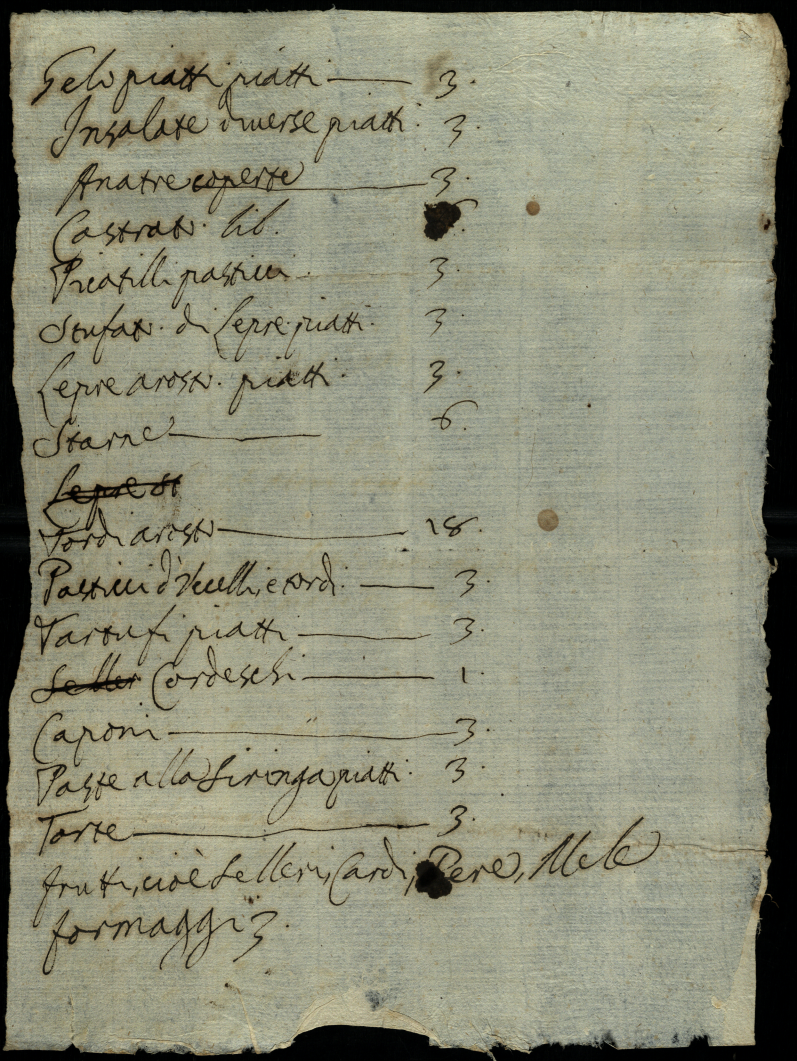 Gelo piatti piatti — 3.
Insalate diverse piatti. 3.
Anatre coperte — 3.
Castrato. lib. 6.
Piccatilli pasticci. 3.
Stufato. di Lepre. piatti. 3.
Lepre arosto. piatti. 3.
Starne — 6.
Lepre st
Tordi arosto — 18.
Pasticci d'Ucelli, e tordi. — 3.
Tartufi piatti — 3.
Selleri Cordeschi — 1.
Caponi — 3.
Paste alla Siringa piatti. 3.
Torte — 3.
frutti, cioè Selleri, Cardi, Pere, Mele
formaggi 3.